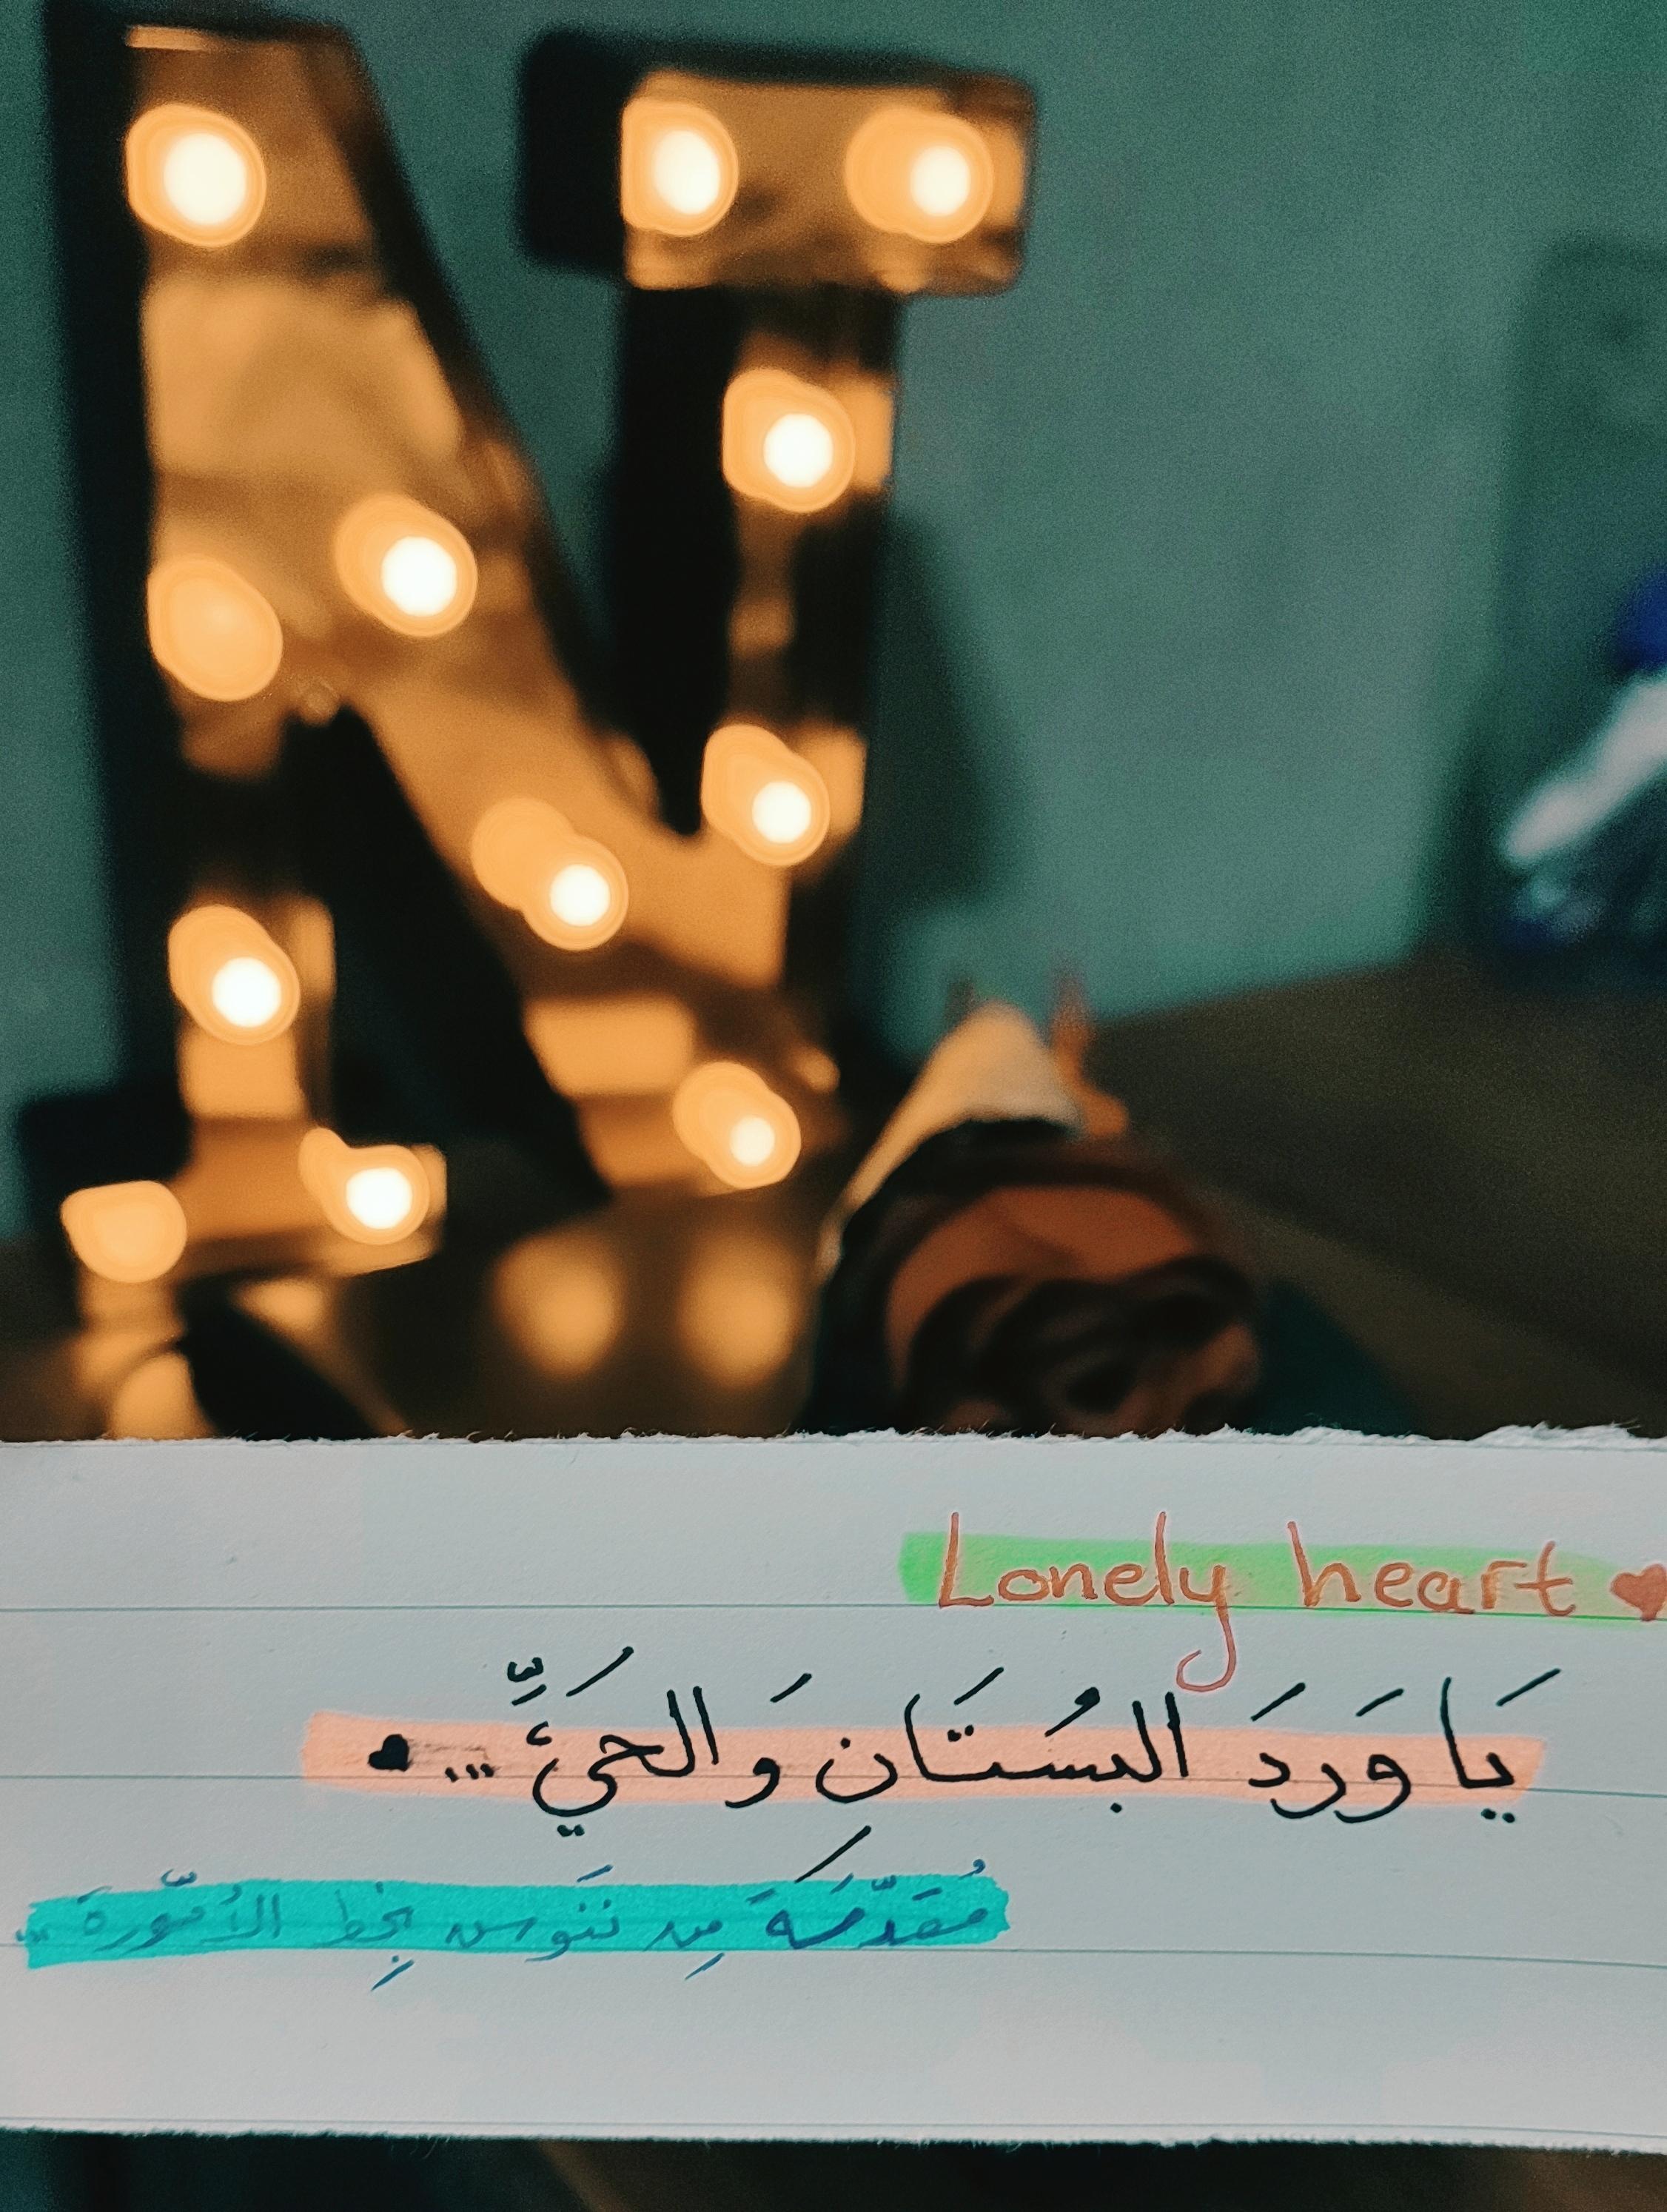 N
Lonely heart ♥
يَا وَردَ البُستَان وَالحَيَِّّ ... ♥
مُقدَّمَة مِن ننَوس بِخط الأمّورة ...